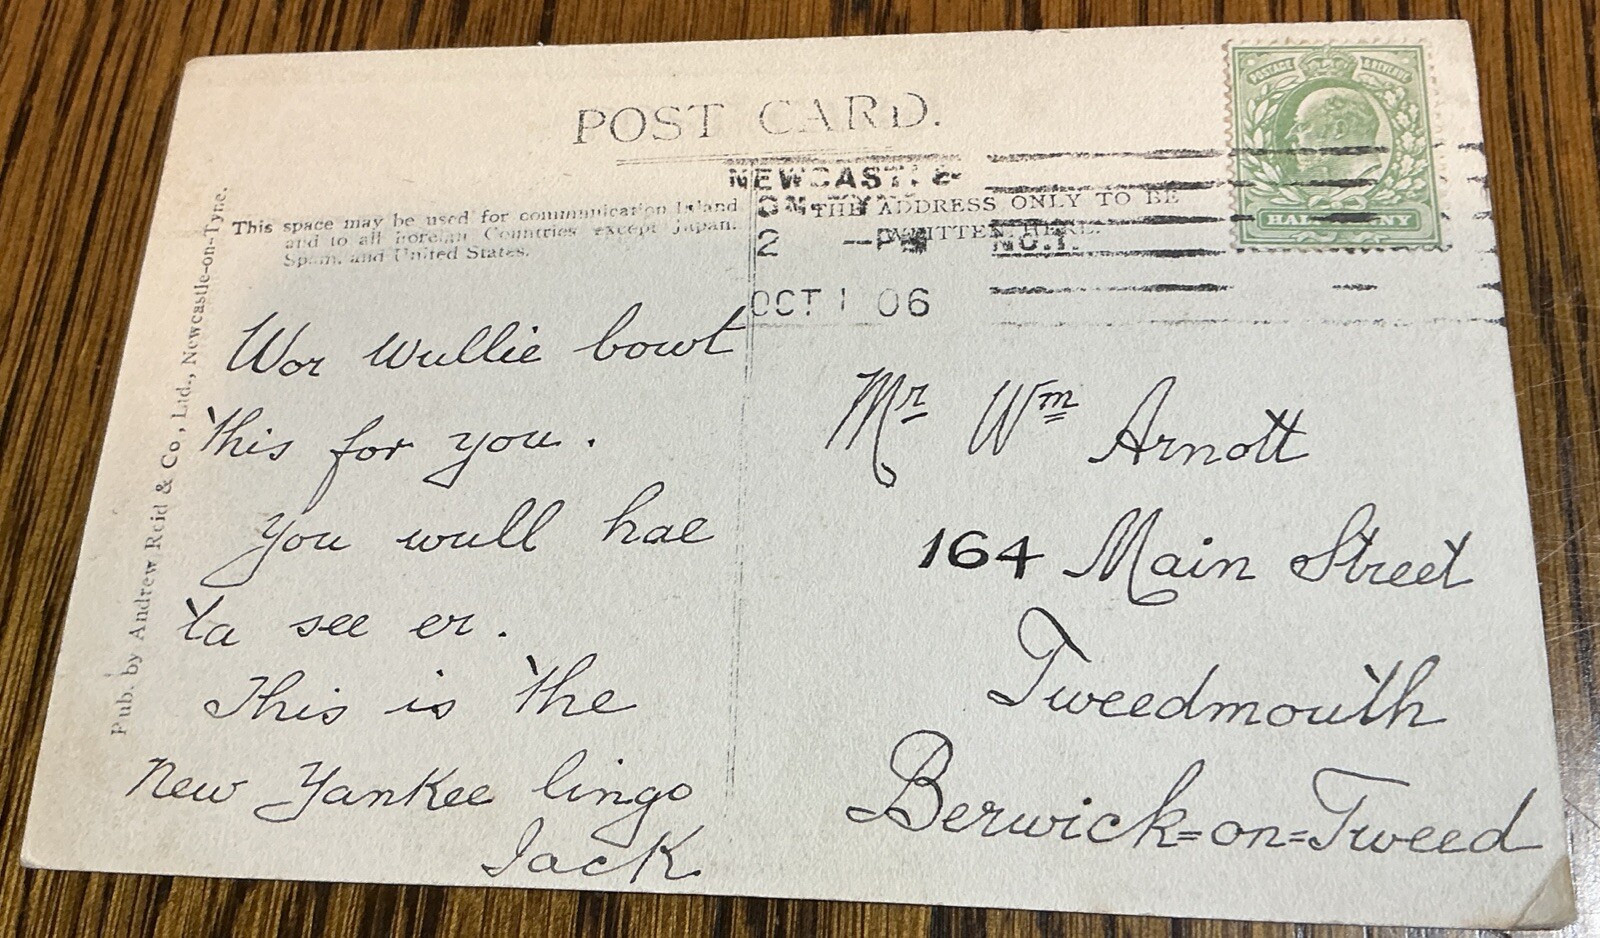 POST CARD.
This space may be used for communication Inland
and to all Foreign Countries except Japan,
Spain, and United States.
THE ADDRESS ONLY TO BE
WRITTEN HERE.
NEWCASTLE-
ON-TYNE
2 —PM NO.1.
OCT 1 06
POSTAGE & REVENUE
HALFPENNY
Pub. by Andrew Reid & Co., Ltd., Newcastle-on-Tyne.
Wor Wullie bowt
this for you.
you wull hae
ta see er.
This is the
new Yankee lingo
Jack.
Mr Wm Arnott
164 Main Street
Tweedmouth
Berwick=on=Tweed